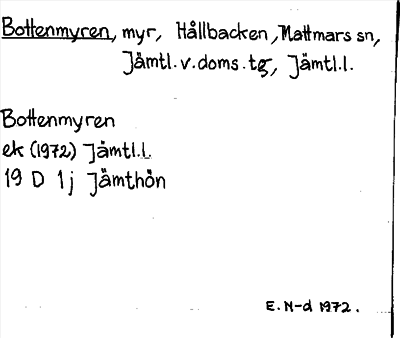 Bottenmyren, myr, Hållbacken, Mattmars sn,
Jämtl.v.doms.tg, Jämtl.l.
Bottenmyren
ek (1972) Jämtl.l.
19 D 1j Jämthön
E.N-d 1972.